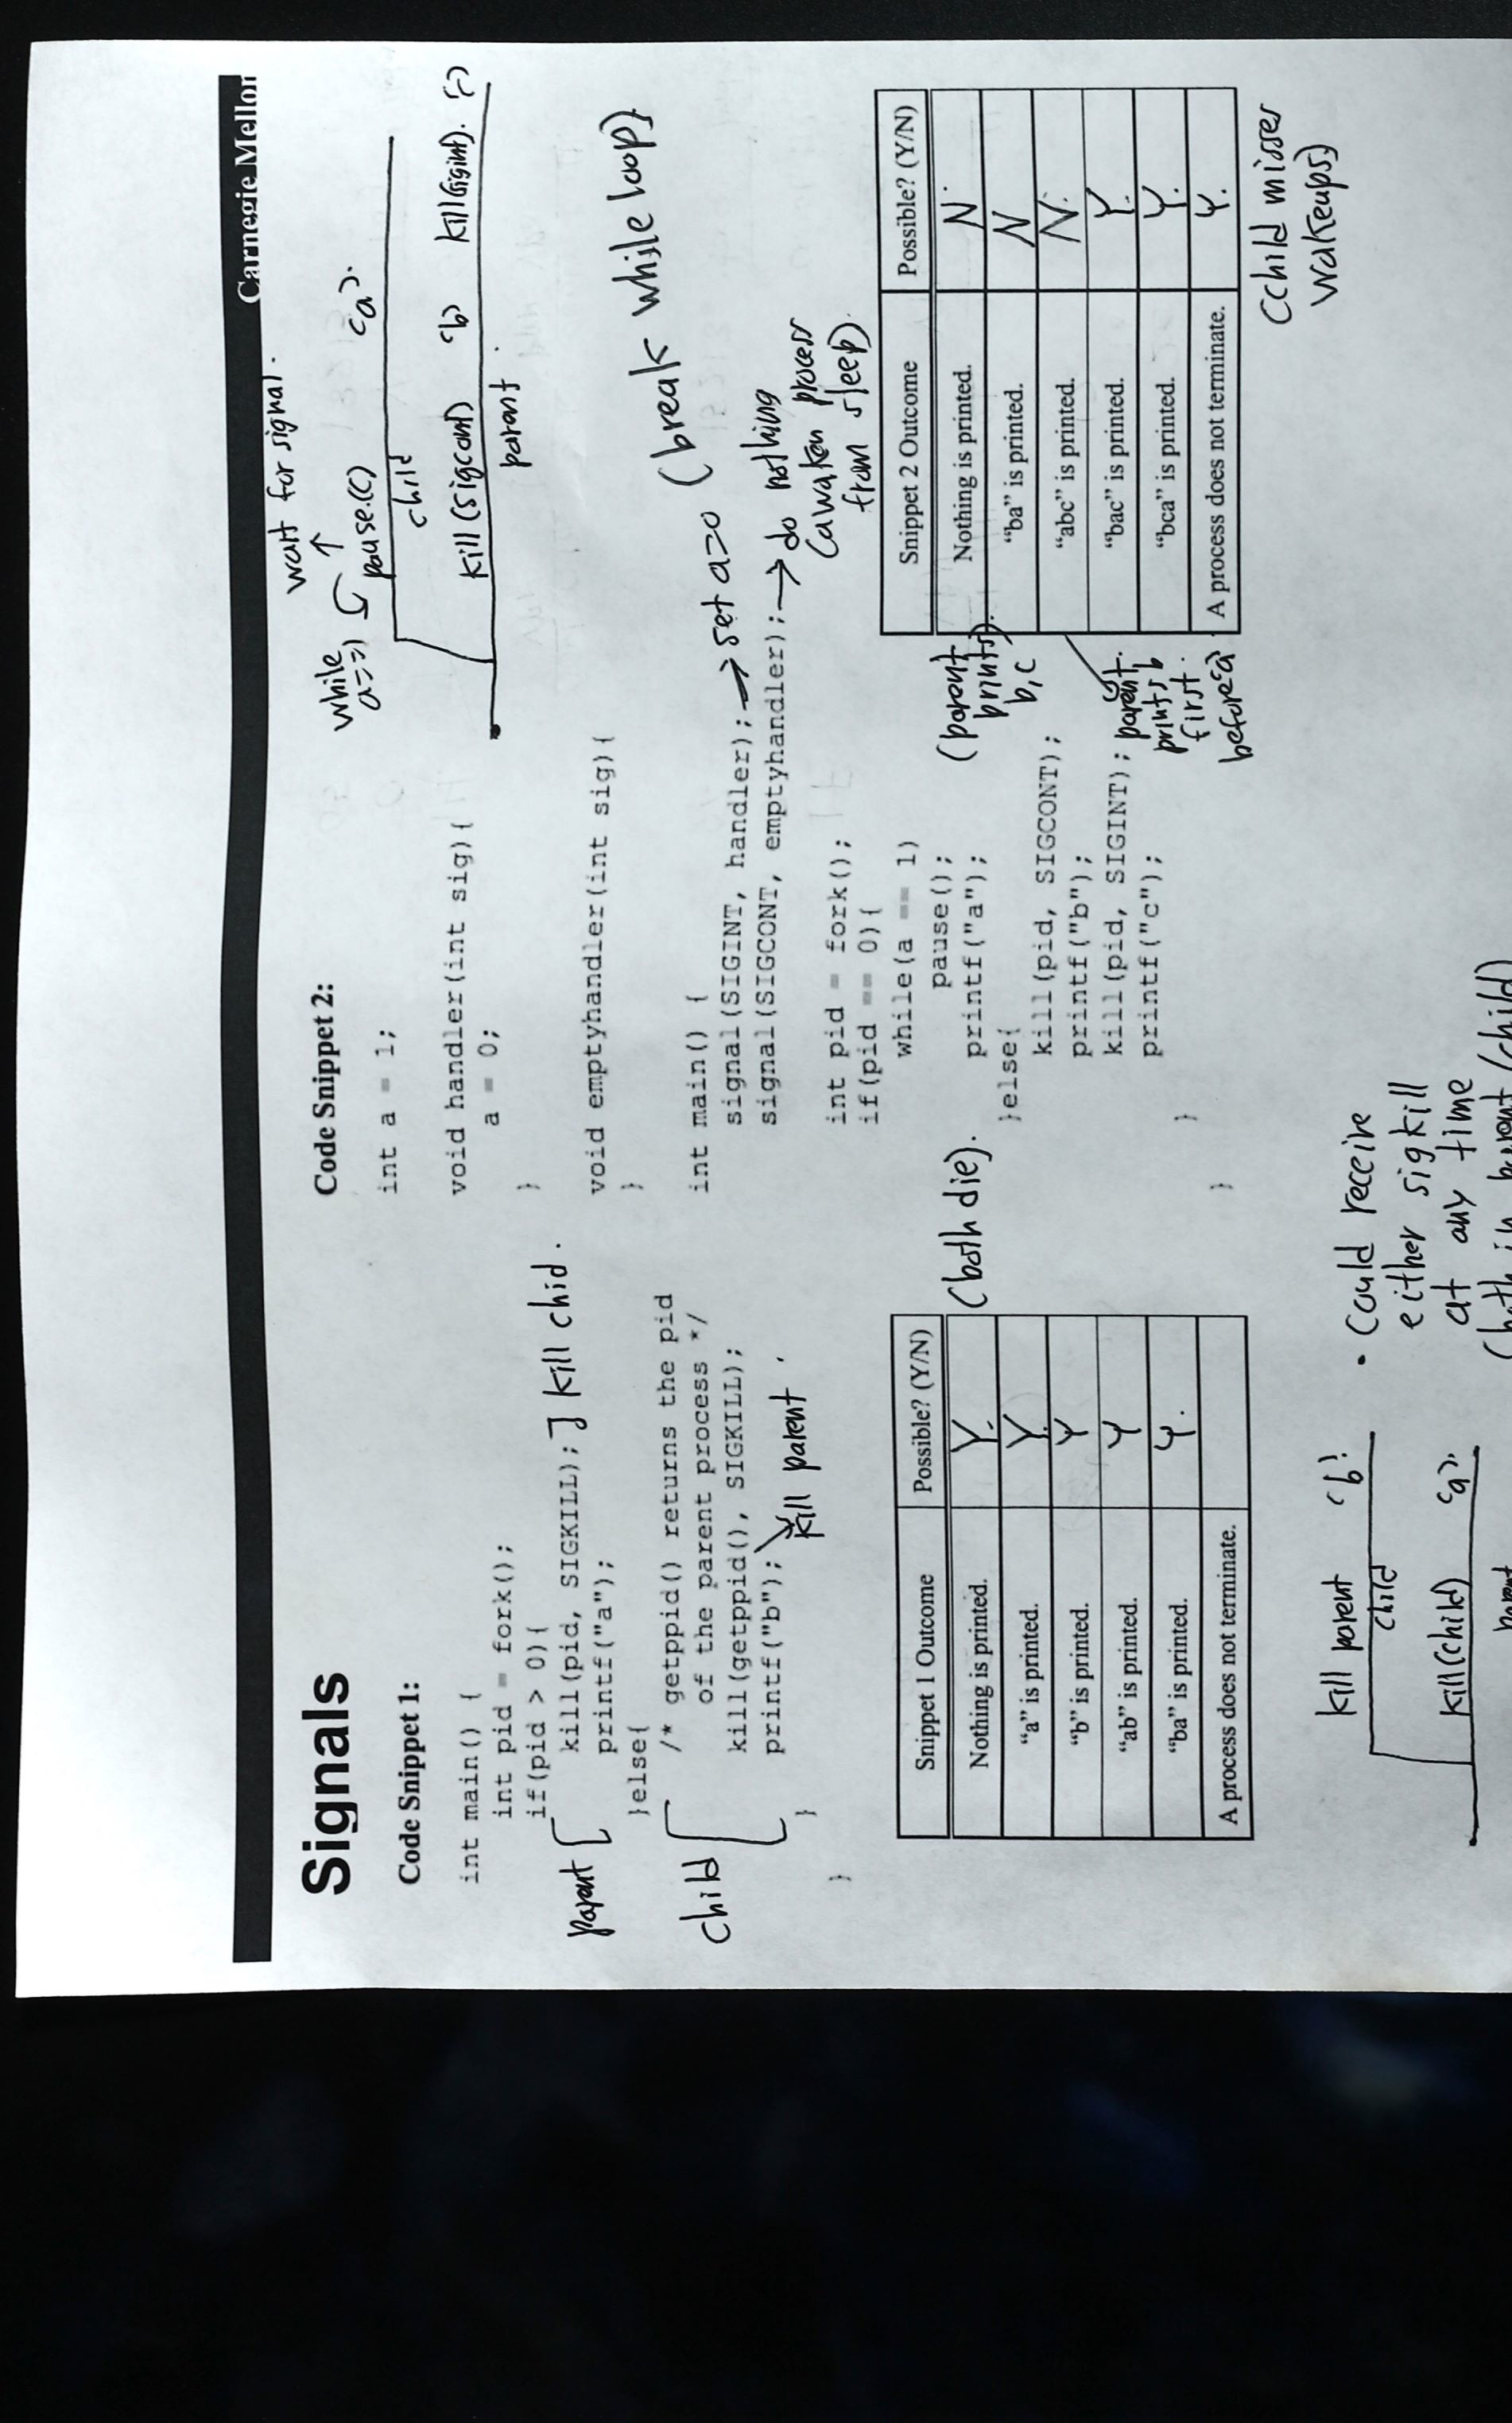 Carnegie Mellon
Signals
Code Snippet 1:
int main() {
int pid = fork();
if(pid > 0){
kill(pid, SIGKILL);
printf("a");
}else{
/* getppid() returns the pid
of the parent process */
kill(getppid(), SIGKILL);
printf("b");
}
}
parent
child
kill chid.
kill parent.
Snippet 1 Outcome Possible? (Y/N)
Nothing is printed. Y.
"a" is printed. Y.
"b" is printed. Y
"ab" is printed. Y
"ba" is printed. Y.
A process does not terminate.
(both die).
kill parent 'b'
child
kill(child) 'a'.
parent
• Could receive
either sigkill
at any time
(both in parent/child)
Code Snippet 2:
int a = 1;
void handler(int sig){
a = 0;
}
void emptyhandler(int sig){
}
int main() {
signal(SIGINT, handler);
signal(SIGCONT, emptyhandler);
int pid = fork();
if(pid == 0){
while(a == 1)
pause();
printf("a");
}else{
kill(pid, SIGCONT);
printf("b");
kill(pid, SIGINT);
printf("c");
}
}
wait for signal.
while
a==1
pause()
'a'.
child
kill(sigcont) 'b' kill(sigint). 'c'
parent.
→ set a=0 (break while loop)
→ do nothing
(awaken process
from sleep).
Snippet 2 Outcome Possible? (Y/N)
Nothing is printed. N.
"ba" is printed. N
"abc" is printed. N.
"bac" is printed. Y.
"bca" is printed. Y.
A process does not terminate. Y.
(parent
prints)
b,c
parent
prints b
first.
before a
(child misses
wakeups)